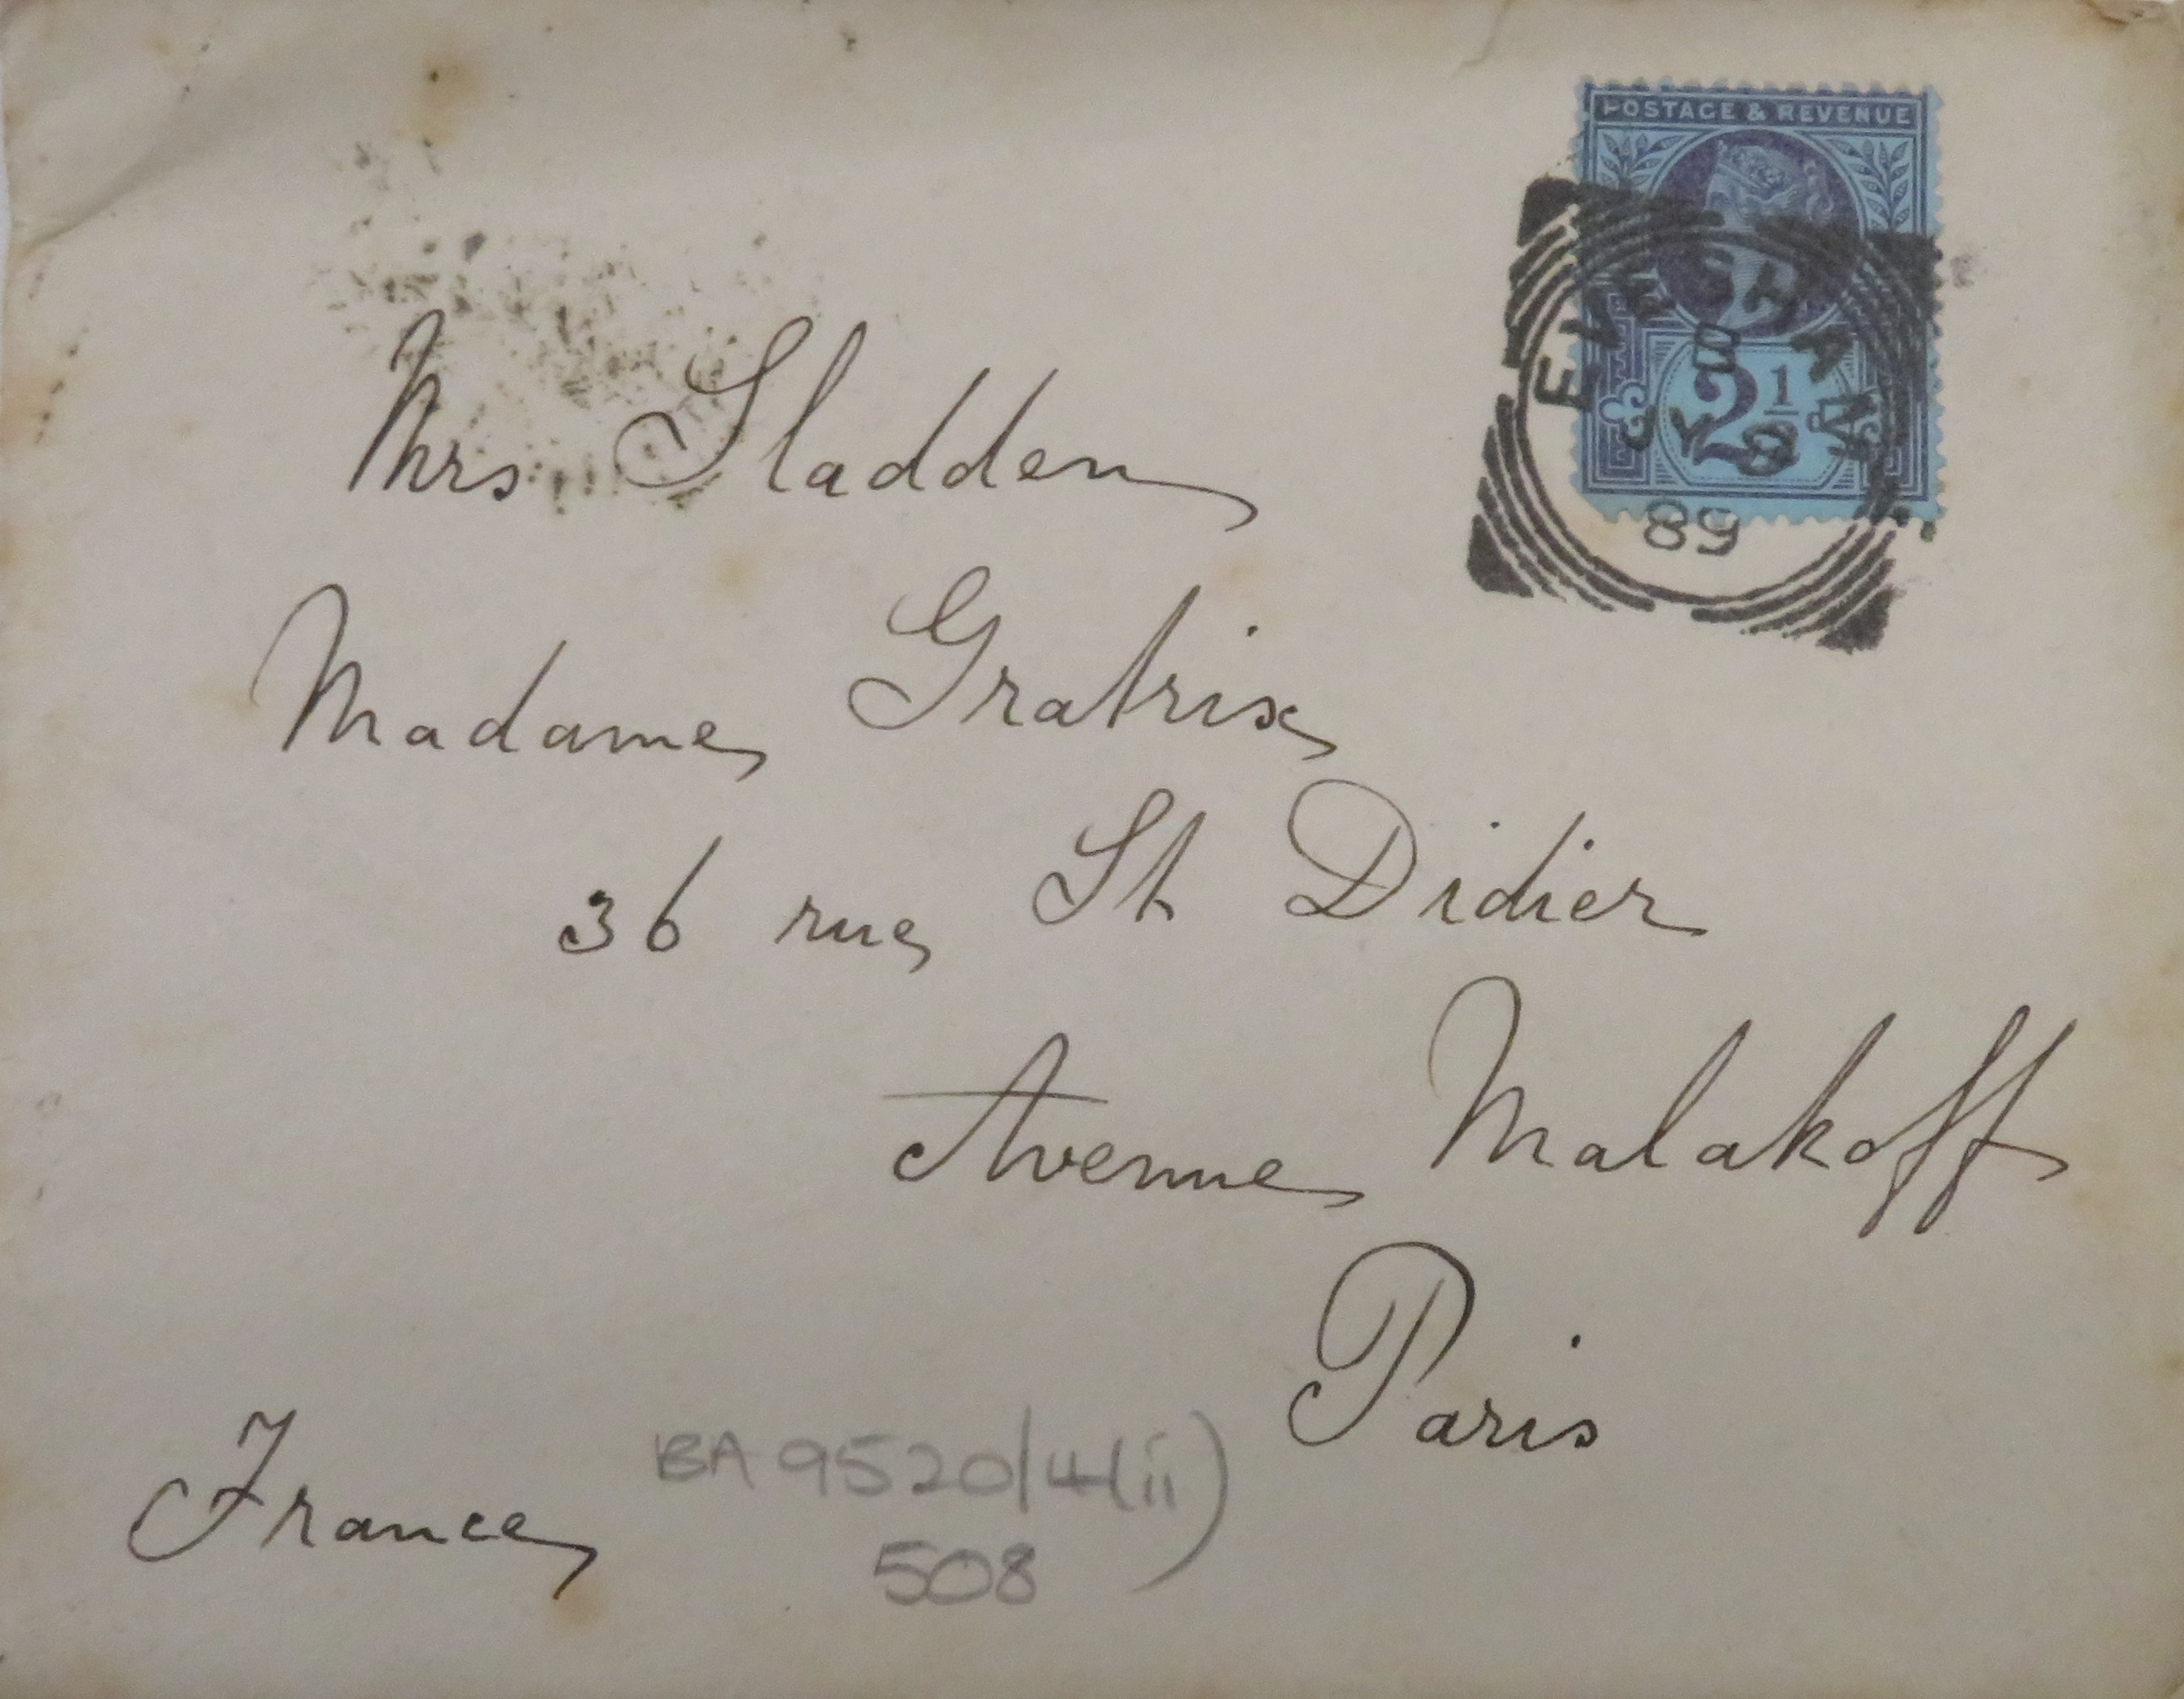 POSTAGE & REVENUE
EVESHAM
B
2½
JY 8
89
Mrs Sladden
Madame Gratrix
36 rue St Didier
Avenue Malakoff
Paris
France
BA 9520/4(ii)
508